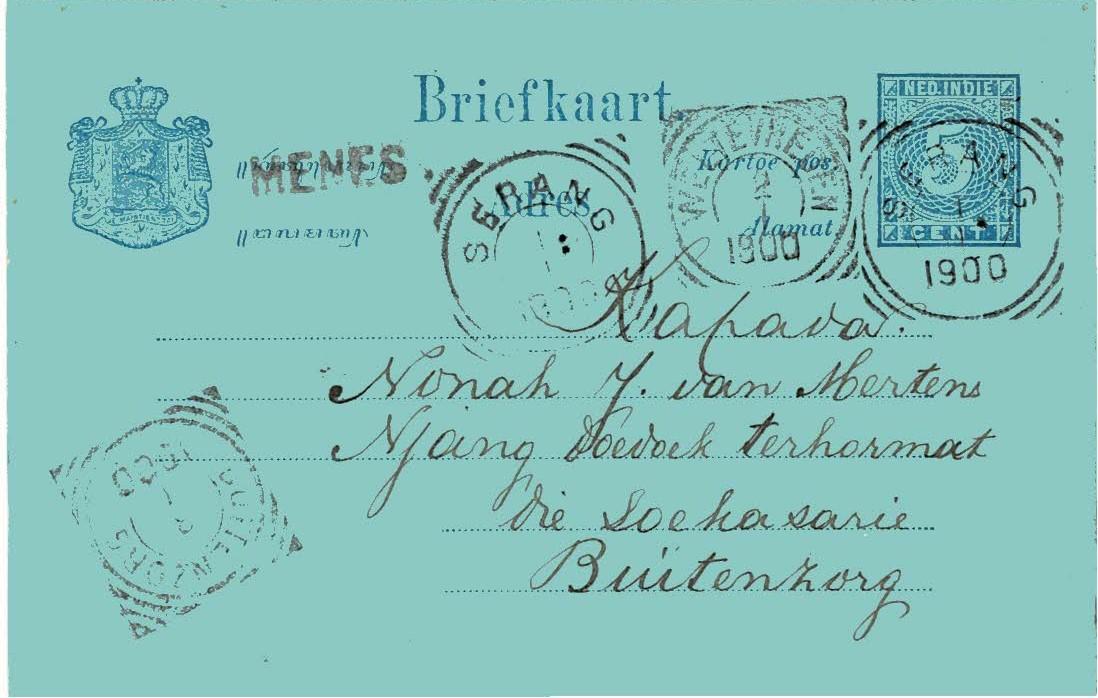 Briefkaart.
NED. INDIE
5
CENT
MENES
Kartoe pos
Adres
Alamat
SERANG
1900
WELTEVREDEN
1900
SERANG
1900
Kapada.
Nonah J. van Mertens
Njang doedoek terhormat
die Soekasarie
Buitenzorg
BUITENZORG
1900